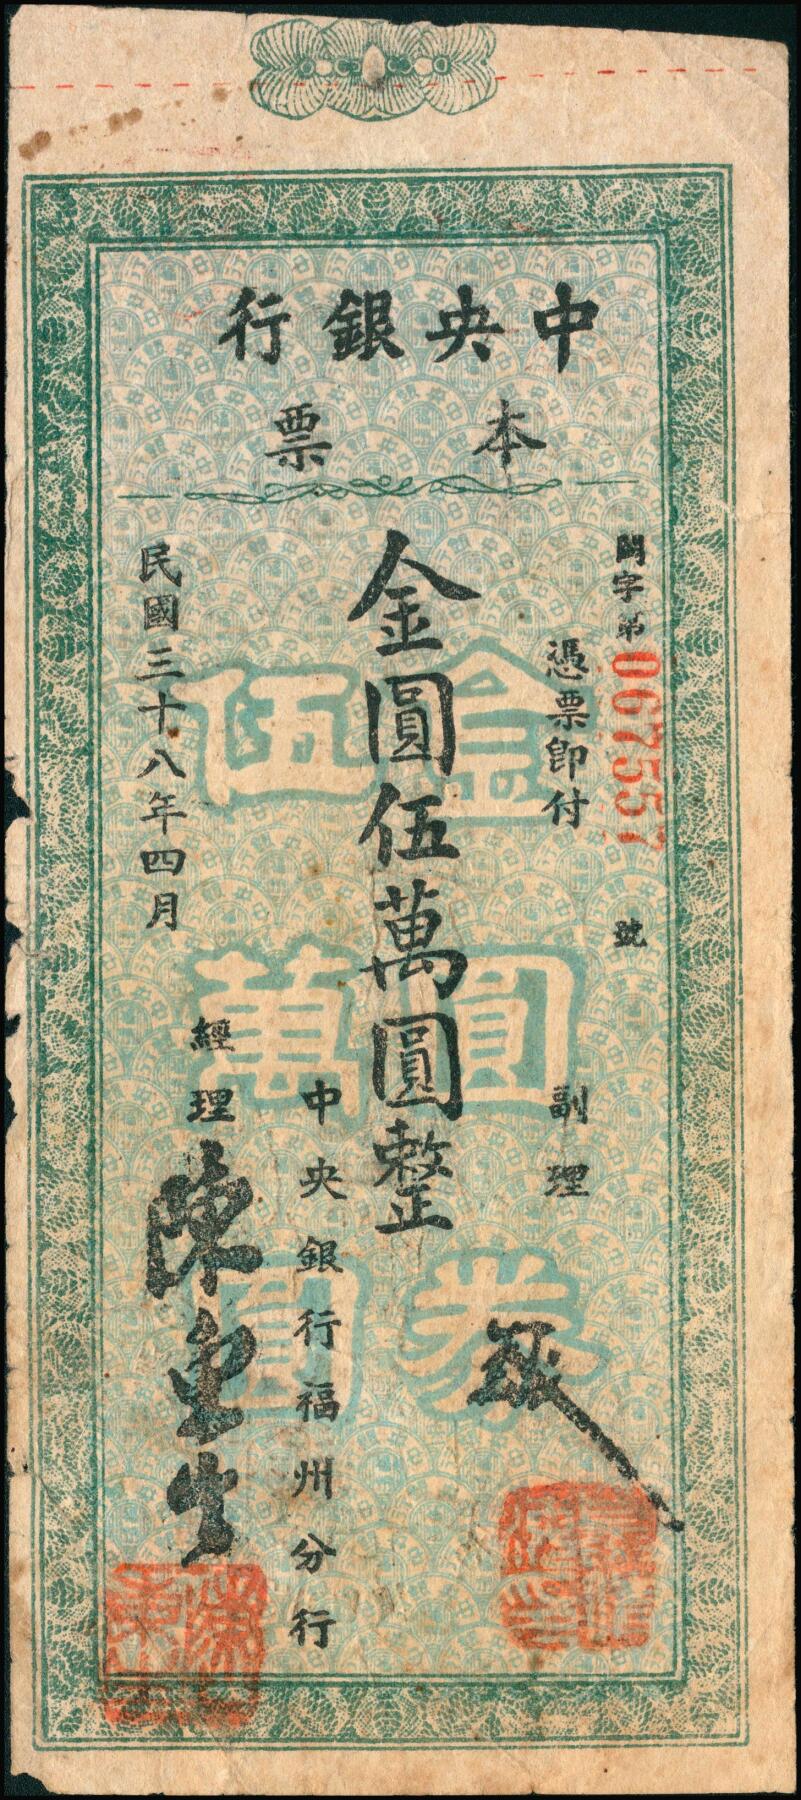 中央銀行
本票
閩字第067557號
憑票即付
金圓伍萬圓整
民國三十八年四月
副理
中央銀行福州分行
經理
金圓券
伍萬圓